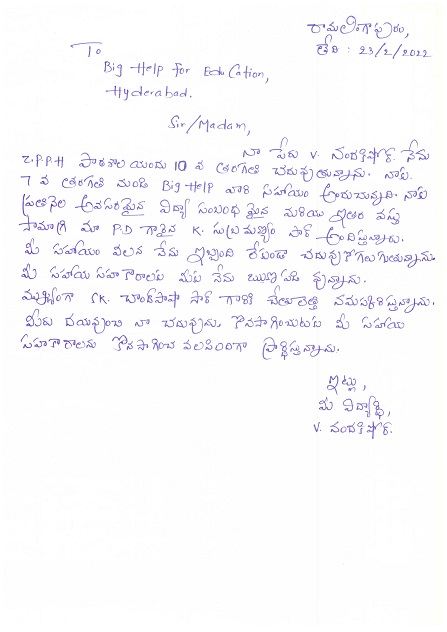 రామలింగాపురం,
తేది : 23/2/2022
To
Big Help for Education,
Hyderabad.
Sir/Madam,
నా పేరు V. నందకిషోర్. నేను
Z.P.P.H పాఠశాల యందు 10 వ తరగతి చదువుతున్నాను. నాకు
7 వ తరగతి నుండి Big-Help వారి సహాయం అందుచున్నది. నాకు
ప్రతినెల అవసరమైన విద్యా సంబంధమైన మరియు ఇతర వస్తు
సామాగ్రి మా P.D గారైన K. సుబ్రమణ్యం సార్ అందిస్తున్నారు.
మీ సహాయం వలన నేను ఇబ్బంది లేకుండా చదువుకోగలుగుతున్నాను.
మీ సహాయ సహకారాలకు మీకు నేను ఋణపడి వున్నాను.
ముఖ్యంగా SK. చాంద్‌పాషా సార్ గారికి చేతులెత్తి నమస్కరిస్తున్నాను.
మీరు దయవుంచి నా చదువును కొనసాగించుటకు మీ సహాయ
సహకారాలను కొనసాగించ వలసిందిగా ప్రార్థిస్తున్నాను.
ఇట్లు,
మీ విద్యార్థి,
V. నందకిషోర్.